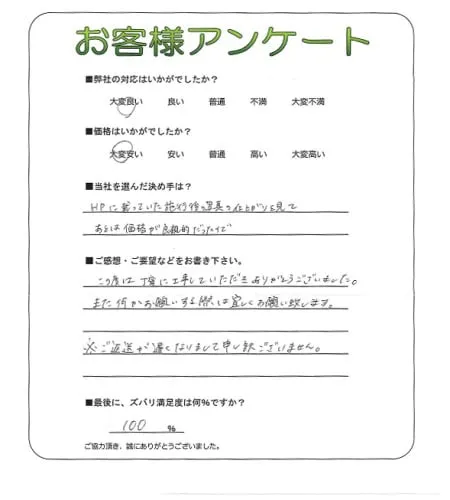 お客様アンケート
■弊社の対応はいかがでしたか?
大変良い 良い 普通 不満 大変不満
■価格はいかがでしたか?
大変安い 安い 普通 高い 大変高い
■当社を選んだ決め手は?
HPに載っていた施行後の写真の仕上がりを見て
あとは価格が良心的だったので
■ご感想・ご要望などをお書き下さい。
この度は丁寧に工事していただきありがとうございました。
また何かお願いする際は宜しくお願い致します。
※ご返送が遅くなりまして申し訳ございません。
■最後に、ズバリ満足度は何%ですか?
100 %
ご協力頂き、誠にありがとうございました。